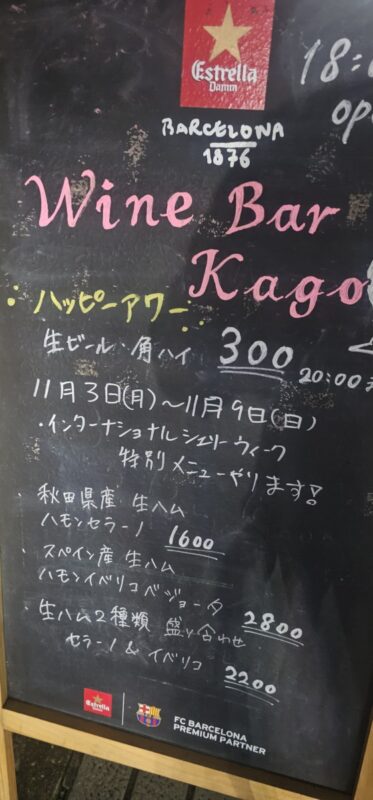 Estrella
Damm
18:
op
BARCELONA
1876
Wine Bar
Kago
ハッピーアワー
生ビール・角ハイ 300
20:00
11月3日(月)〜11月9日(日)
・インターナショナルシェリーウィーク
特別メニューやります!
・秋田県産 生ハム
ハモンセラーノ 1600
・スペイン産 生ハム
ハモンイベリコベジョータ 2800
・生ハム2種類 盛り合わせ
セラーノ & イベリコ 2200
Estrella
Damm
FC BARCELONA
PREMIUM PARTNER